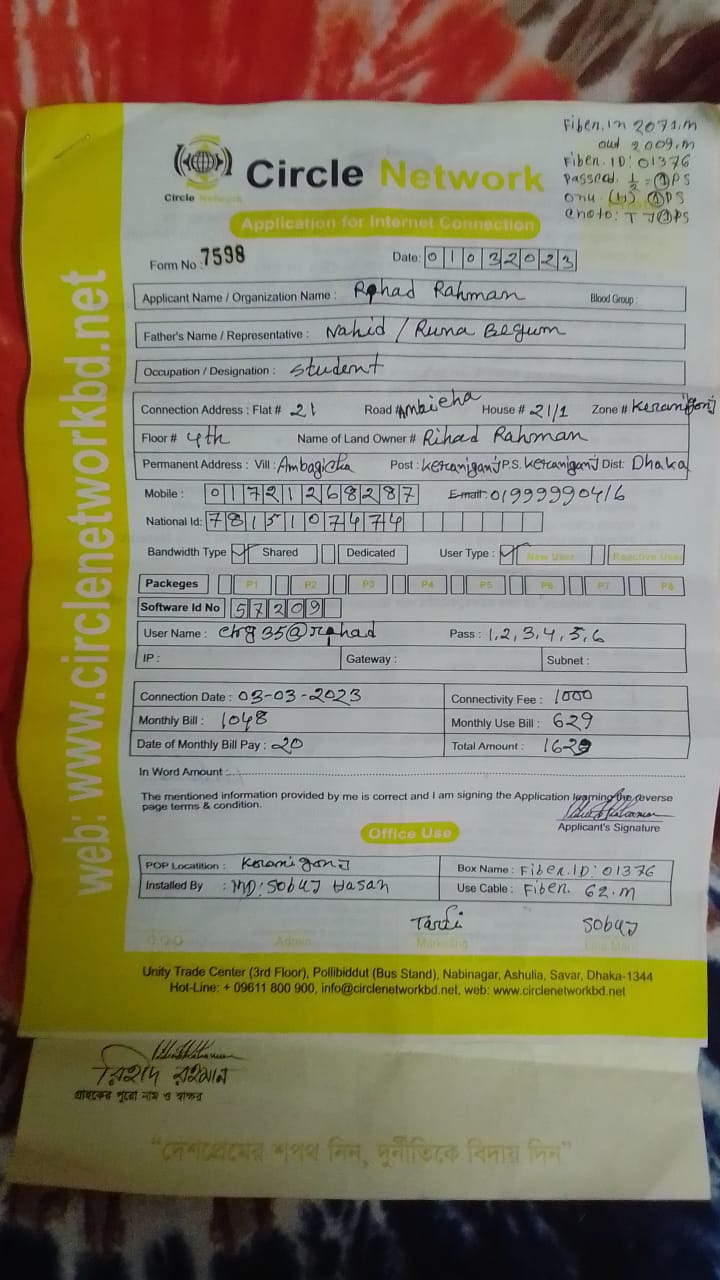 Fiber.in 2071.m
out 2009.m
Fiber.ID: 01376
Passed. 1/2 = PS
onu (4) PS
Circle Network
Circle Network
Application for Internet Connection
Form No : 7598 Date: 01032023
Applicant Name / Organization Name : Rihad Rahman Blood Group :
Father's Name / Representative : Nahid / Runa Begum
Occupation / Designation : Student
Connection Address : Flat # 21 Road # House # 21/1 Zone # Keranigonj
Floor # 4th Name of Land Owner # Rihad Rahman
Permanent Address : Vill : Ambagicha Post : Keraniganj P.S. Keraniganj Dist: Dhaka
Mobile : 01721268287 E-mail: 01999990416
National Id: 7815107474
Bandwidth Type ✓ Shared Dedicated User Type : ✓ New User Reactive User
Packeges P1 P2 P3 P4 P5 P6 P7 P8
Software Id No 57209
User Name : Pass : 1,2,3,4,5,6
IP : Gateway : Subnet :
Connection Date : 03-03-2023 Connectivity Fee : 1000
Monthly Bill : 1048 Monthly Use Bill : 629
Date of Monthly Bill Pay : 20 Total Amount : 1629
In Word Amount :
The mentioned information provided by me is correct and I am signing the Application learning the reverse
page terms & condition.
Applicant's Signature
Office Use
POP Locatition : Keranigonj Box Name : Fiber.ID: 01376
Installed By : MD: Sobuj Hasan Use Cable : Fiber. 62.m
Sobuj
Admin Marketing
Unity Trade Center (3rd Floor), Pollibiddut (Bus Stand), Nabinagar, Ashulia, Savar, Dhaka-1344
Hot-Line: + 09611 800 900, info@circlenetworkbd.net, web: www.circlenetworkbd.net
web: www.circlenetworkbd.net
রিহাদ রহমান
গ্রাহকের পুরো নাম ও স্বাক্ষর
“দেশপ্রেমের শপথ নিন, দুর্নীতিকে বিদায় দিন”